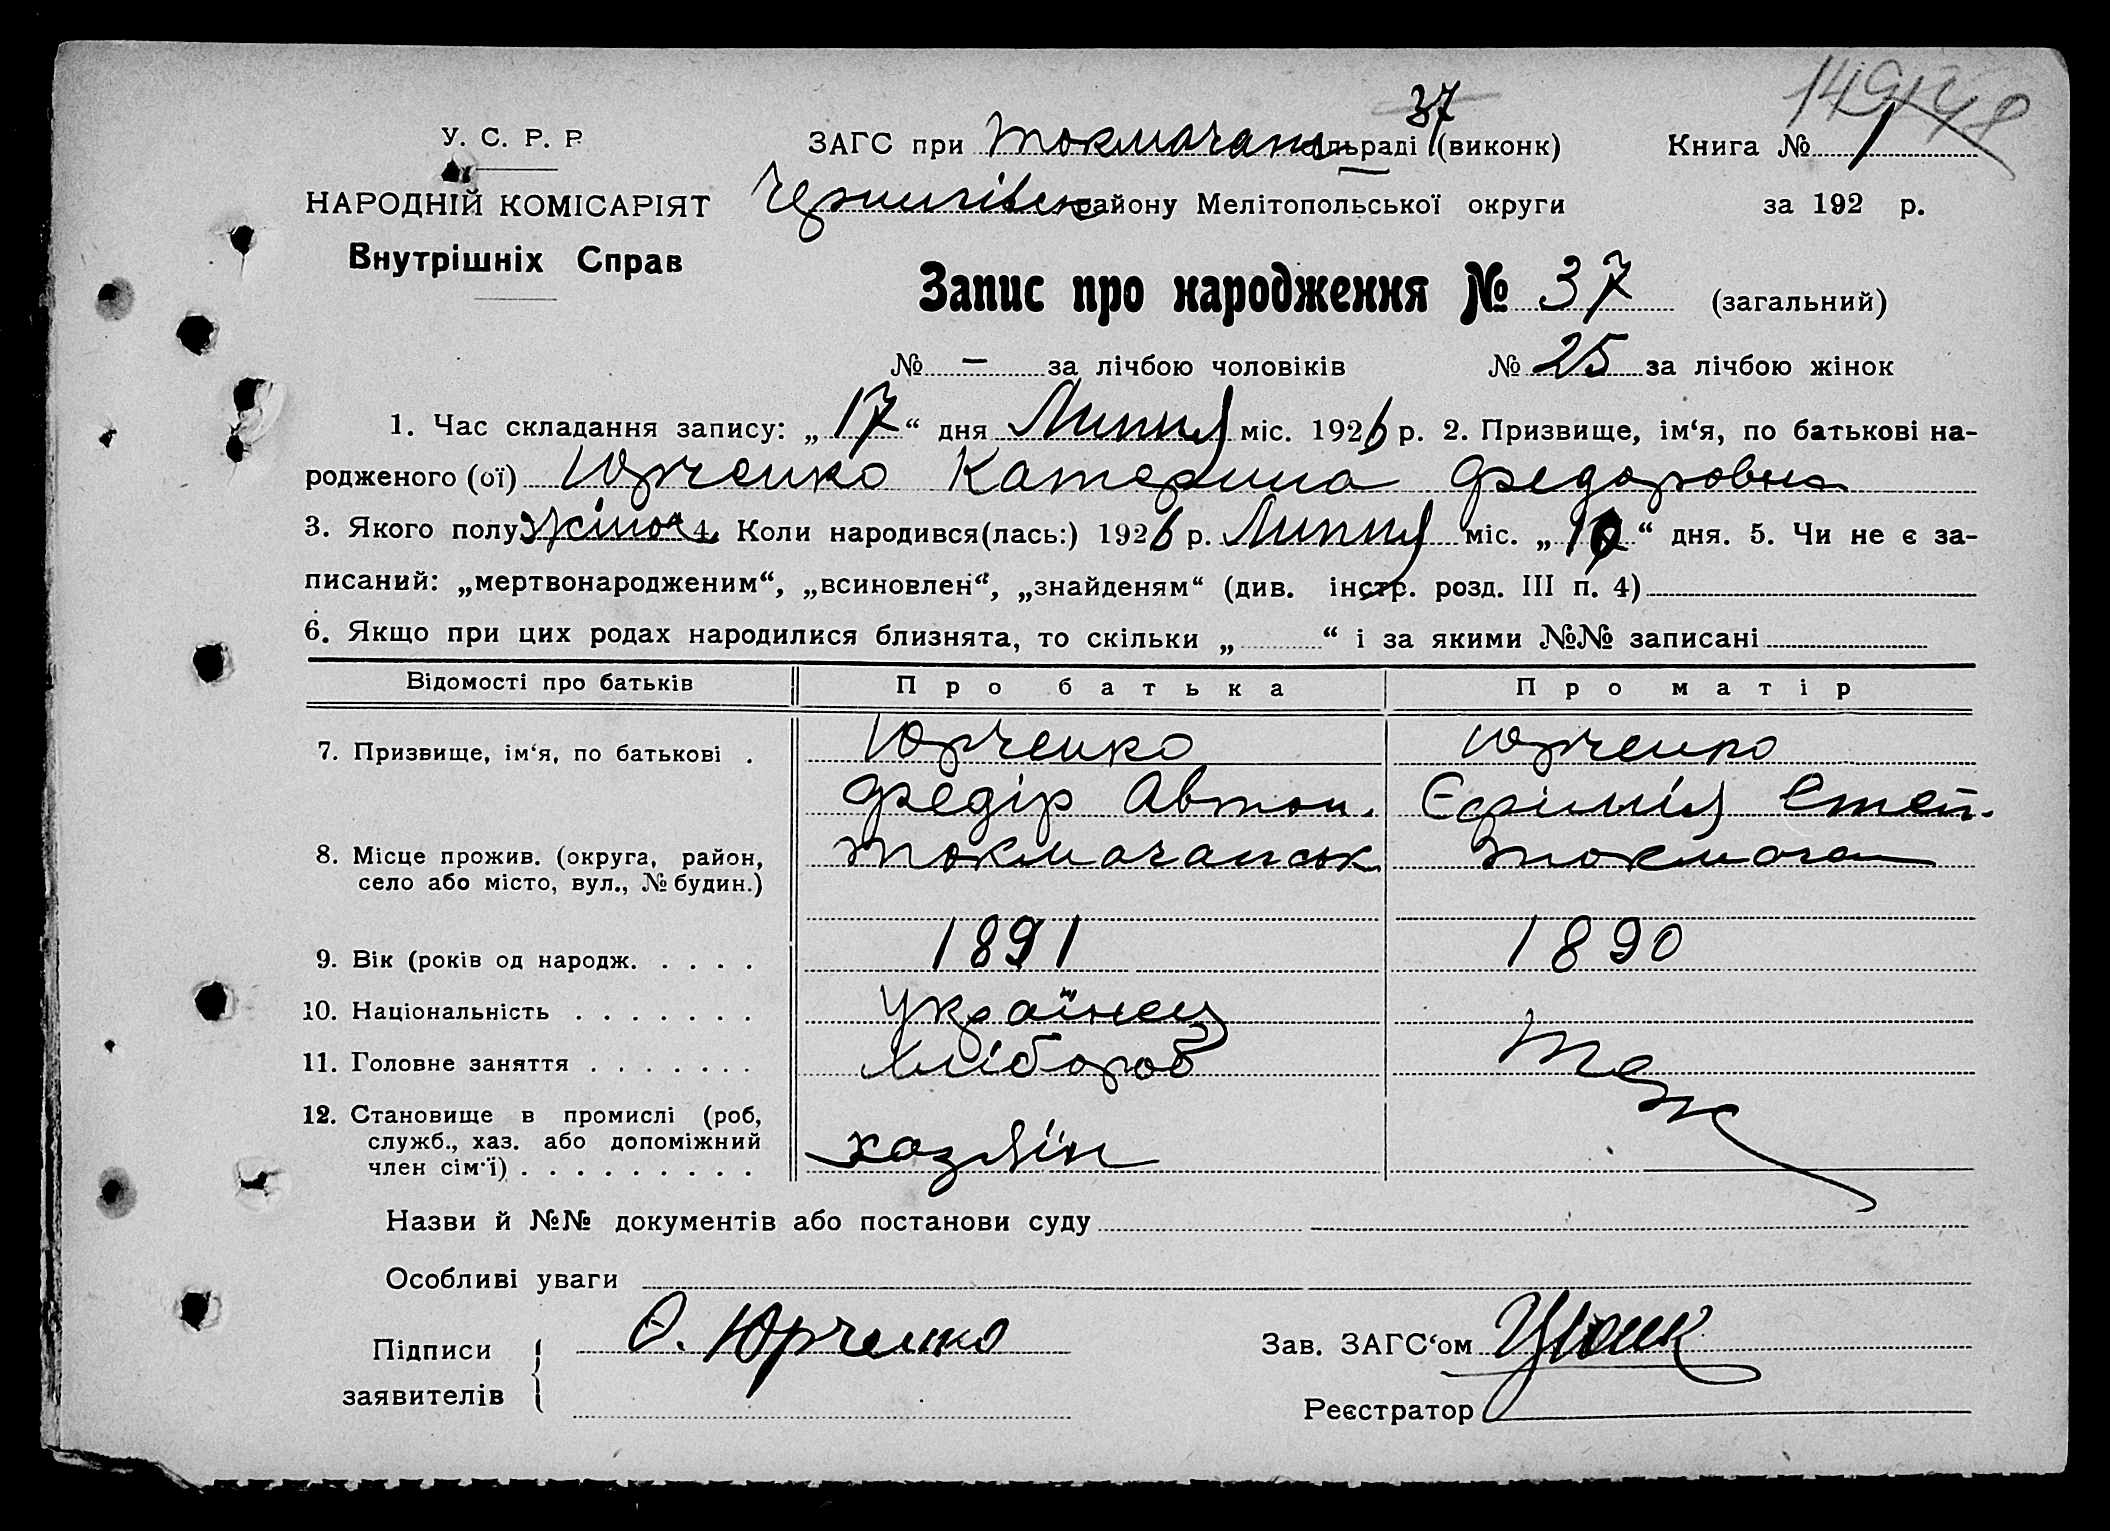 149148
37
У. С. Р. Р. ЗАГС при Токмачанс сільраді (виконк) Книга № 1
НАРОДНІЙ КОМІСАРІЯТ Чернигівськ району Мелітопольської округи за 192 р.
Внутрішніх Справ
Запис про народження № 37 (загальний)
№ — за лічбою чоловіків № 25 за лічбою жінок
1. Час складання запису: „17“ дня Липня міс. 1926 р. 2. Призвище, ім‘я, по батькові на-
родженого (ої) Юрченко Катерина Федоровна
3. Якого полу жіноч 4. Коли народився(лась:) 1926 р. Липня міс. „10“ дня. 5. Чи не є за-
писаний: „мертвонародженим“, „всиновлен“, „знайденям“ (див. інстр. розд. III п. 4)
6. Якщо при цих родах народилися близнята, то скільки „ “ і за якими №№ записані
Відомості про батьків Про батька Про матір
7. Призвище, ім‘я, по батькові . Юрченко Юрченко
Федір Автон. Єфимія Степ.
8. Місце прожив. (округа, район, Токмачанськ Токмача
село або місто, вул., № будин.)
9. Вік (років од народж. . . . . 1891 1890
10. Національність . . . . . . . Українец
11. Головне заняття . . . . . . . Хлібороб Теж
12. Становище в промислі (роб,
служб., хаз. або допоміжний хазяїн
член сім‘ї) . . . . . . . . .
Назви й №№ документів або постанови суду
Особливі уваги
Підписи Ѳ. Юрченко Зав. ЗАГС‘ом
заявителів Реєстратор